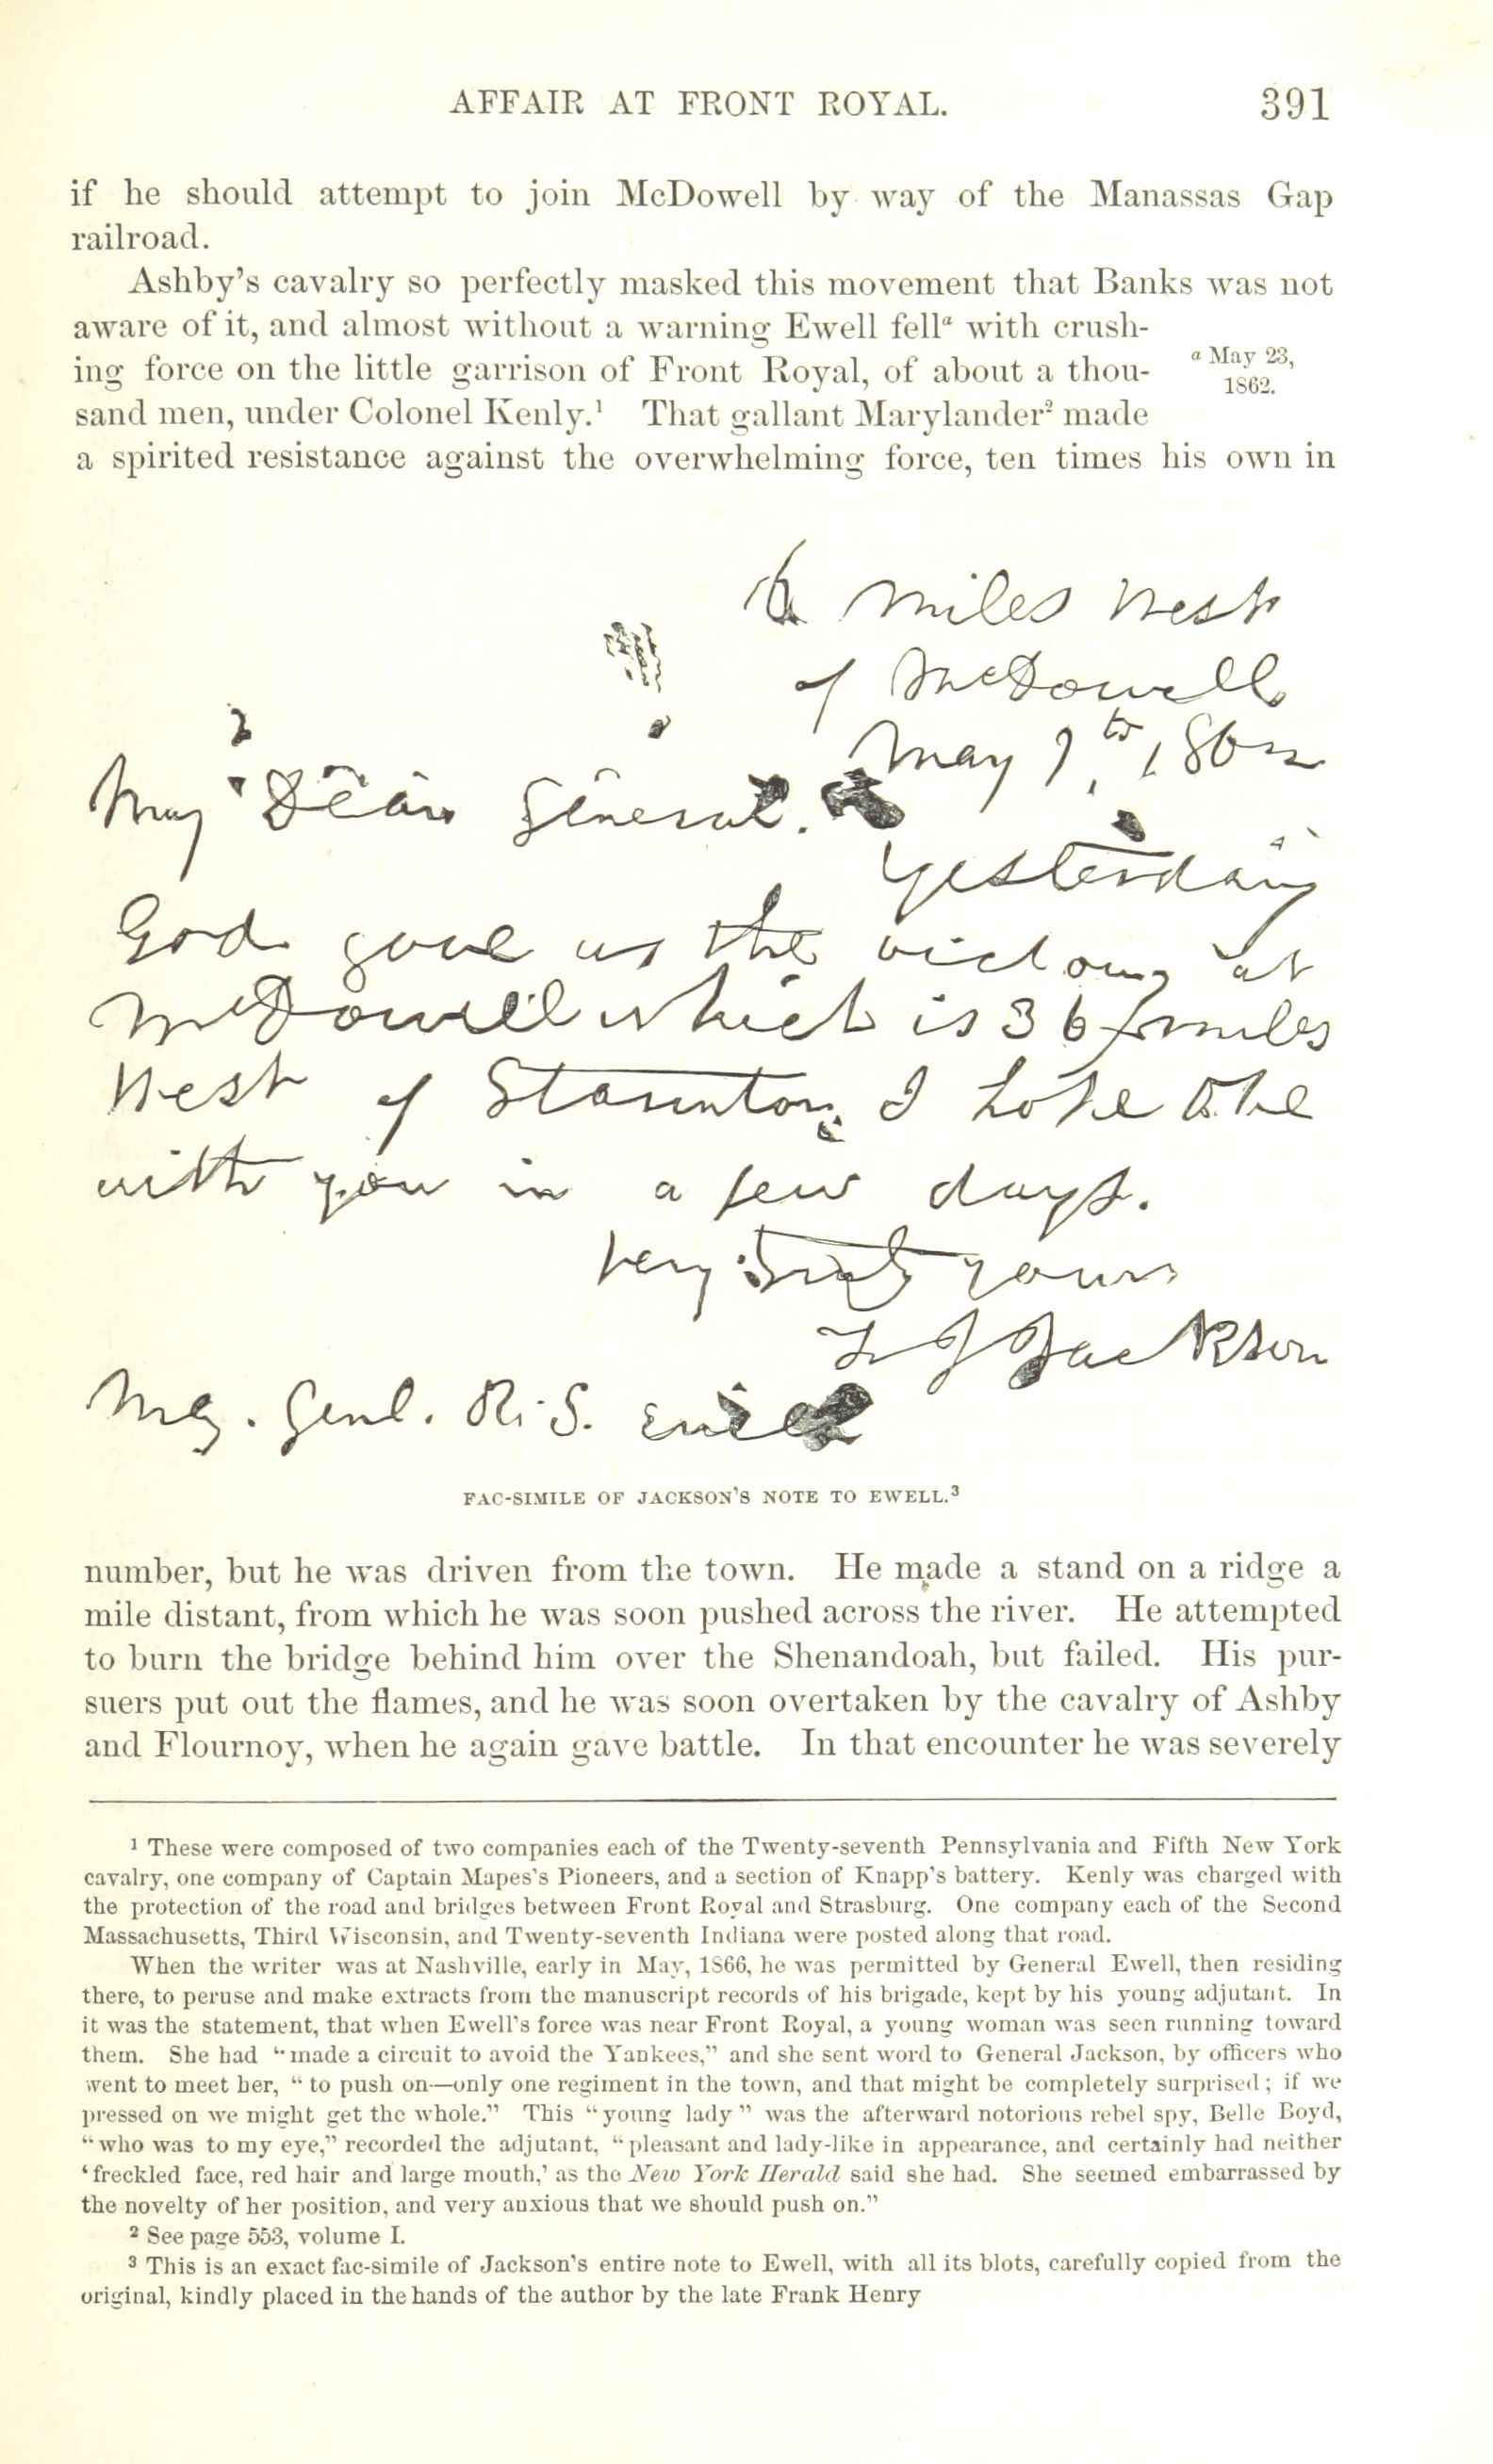 AFFAIR AT FRONT ROYAL. 391
if he should attempt to join McDowell by way of the Manassas Gap
railroad.
Ashby's cavalry so perfectly masked this movement that Banks was not
aware of it, and almost without a warning Ewell fellᵃ with crush-
ing force on the little garrison of Front Royal, of about a thou-
sand men, under Colonel Kenly.¹ That gallant Marylander² made
a spirited resistance against the overwhelming force, ten times his own in
ᵃ May 23,
1862.
miles West
of McDowell
May 9th, 1862
My Dear General.
Yesterday
God gave us the victory at
McDowell which is 36 miles
West of Staunton, I hope to be
with you in a few days.
Very truly yours
T J Jackson
Maj. Genl. R. S. Ewell
FAC-SIMILE OF JACKSON'S NOTE TO EWELL.³
number, but he was driven from the town. He made a stand on a ridge a
mile distant, from which he was soon pushed across the river. He attempted
to burn the bridge behind him over the Shenandoah, but failed. His pur-
suers put out the flames, and he was soon overtaken by the cavalry of Ashby
and Flournoy, when he again gave battle. In that encounter he was severely
¹ These were composed of two companies each of the Twenty-seventh Pennsylvania and Fifth New York
cavalry, one company of Captain Mapes's Pioneers, and a section of Knapp's battery. Kenly was charged with
the protection of the road and bridges between Front Royal and Strasburg. One company each of the Second
Massachusetts, Third Wisconsin, and Twenty-seventh Indiana were posted along that road.
When the writer was at Nashville, early in May, 1866, he was permitted by General Ewell, then residing
there, to peruse and make extracts from the manuscript records of his brigade, kept by his young adjutant. In
it was the statement, that when Ewell's force was near Front Royal, a young woman was seen running toward
them. She had "made a circuit to avoid the Yankees," and she sent word to General Jackson, by officers who
went to meet her, "to push on—only one regiment in the town, and that might be completely surprised; if we
pressed on we might get the whole." This "young lady" was the afterward notorious rebel spy, Belle Boyd,
"who was to my eye," recorded the adjutant, "pleasant and lady-like in appearance, and certainly had neither
'freckled face, red hair and large mouth,' as the New York Herald said she had. She seemed embarrassed by
the novelty of her position, and very anxious that we should push on."
² See page 553, volume I.
³ This is an exact fac-simile of Jackson's entire note to Ewell, with all its blots, carefully copied from the
original, kindly placed in the hands of the author by the late Frank Henry